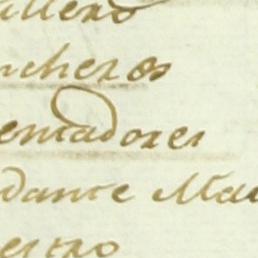 allero
ncheros
entadores
dante Ma
estro